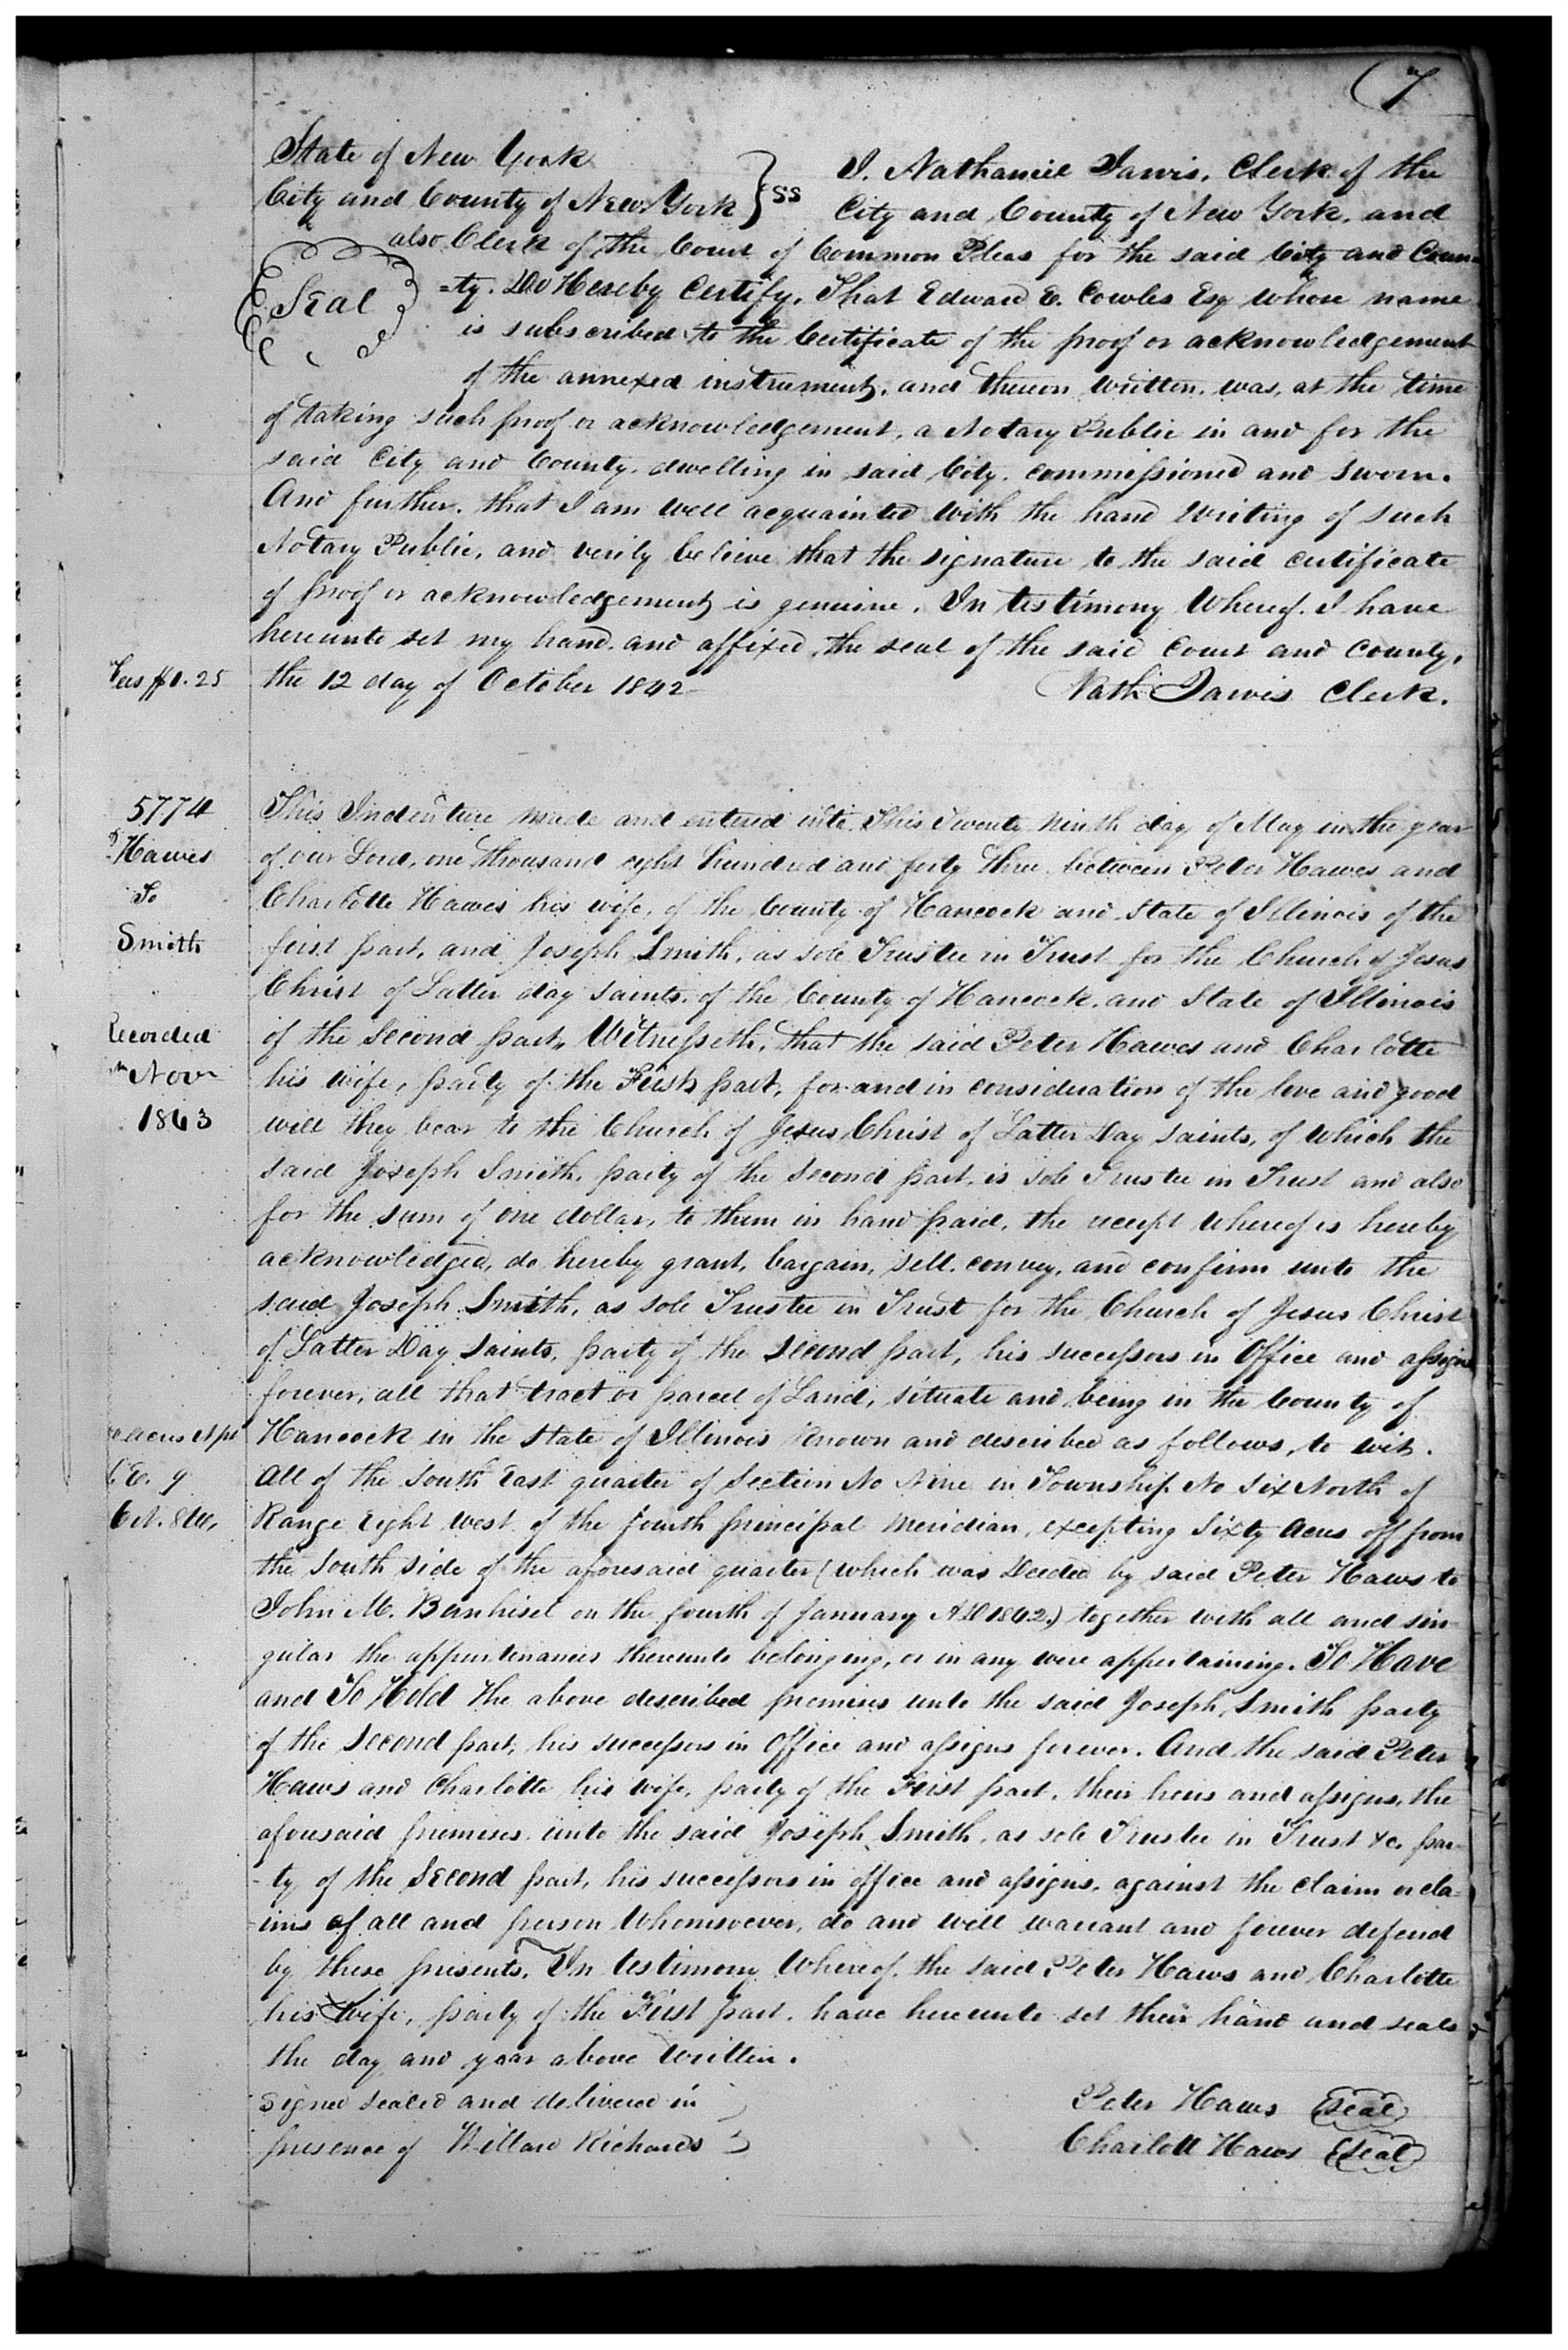 7
State of New York
City and County of New York } ss
I, Nathaniel Jarvis, Clerk of the
City and County of New York, and
also Clerk of the Court of Common Pleas for the said City and Coun-
Seal
=ty. Do Hereby Certify, That Edward E. Cowles Esq whose name
is subscribed to the Certificate of the proof or acknowledgement
of the annexed instrument, and thereon written, was, at the time
of taking such proof or acknowledgement, a Notary Public in and for the
said City and County, dwelling in said City, commissioned and sworn.
And further, that I am well acquainted with the hand writing of such
Notary Public, and verily believe that the signature to the said certificate
of proof or acknowledgement is genuine. In testimony Whereof, I have
hereunto set my hand and affixed the seal of the said Court and County,
the 12 day of October 1842
Nath Jarvis Clerk.
5774
Hawes
To
Smith
Recorded
Nov
1843
This Indenture made and entered into This Twenty ninth day of May in the year
of our Lord, one thousand eight hundred and forty three between Peter Hawes and
Charlotte Hawes his wife, of the County of Hancock and State of Illinois of the
first part, and Joseph Smith, as sole Trustee in Trust for the Church of Jesus
Christ of Latter day saints, of the County of Hancock, and State of Illinois
of the Second part, Witnesseth, that the said Peter Hawes and Charlotte
his wife, party of the First part, for and in consideration of the love and good
will they bear to the Church of Jesus Christ of Latter Day saints, of which the
said Joseph Smith, party of the second part, is sole Trustee in Trust and also
for the sum of one dollar, to them in hand paid, the receipt whereof is hereby
acknowledged, do hereby grant, bargain, sell, convey, and confirm unto the
said Joseph Smith, as sole Trustee in Trust for the Church of Jesus Christ
of Latter Day Saints, party of the second part, his successors in Office and assigns
forever, all that tract or parcel of Land, situate and being in the County of
Hancock in the State of Illinois Known and described as follows, to wit.
All of the South East quarter of Section No Nine in Township No Six North of
Range Eight west of the fourth principal meridian, excepting Sixty acres off from
the South side of the aforesaid quarter (which was Deeded by said Peter Haws to
John M. Bernhisel on the fourth of January AD 1842.) together with all and sin-
gular the appurtenances thereunto belonging, or in any were appertaining. To Have
and To Hold The above described premises unto the said Joseph Smith party
of the Second part, his successors in Office and assigns forever. And the said Peter
Haws and Charlotte his wife, party of the First part, their heirs and assigns, the
aforesaid premises, unto the said Joseph Smith, as sole Trustee in Trust &c. par-
-ty of the Second part, his successors in office and assigns, against the claim or cla-
-ims of all and person Whomsoever, do and will warrant and forever defend
by these presents. In testimony Whereof, the said Peter Haws and Charlotte
his Wife, party of the First part, have hereunto set their hand and seals
the day and year above Written.
Signed sealed and delivered in
presence of Willard Richards
Peter Haws Seal
Charlott Haws Seal